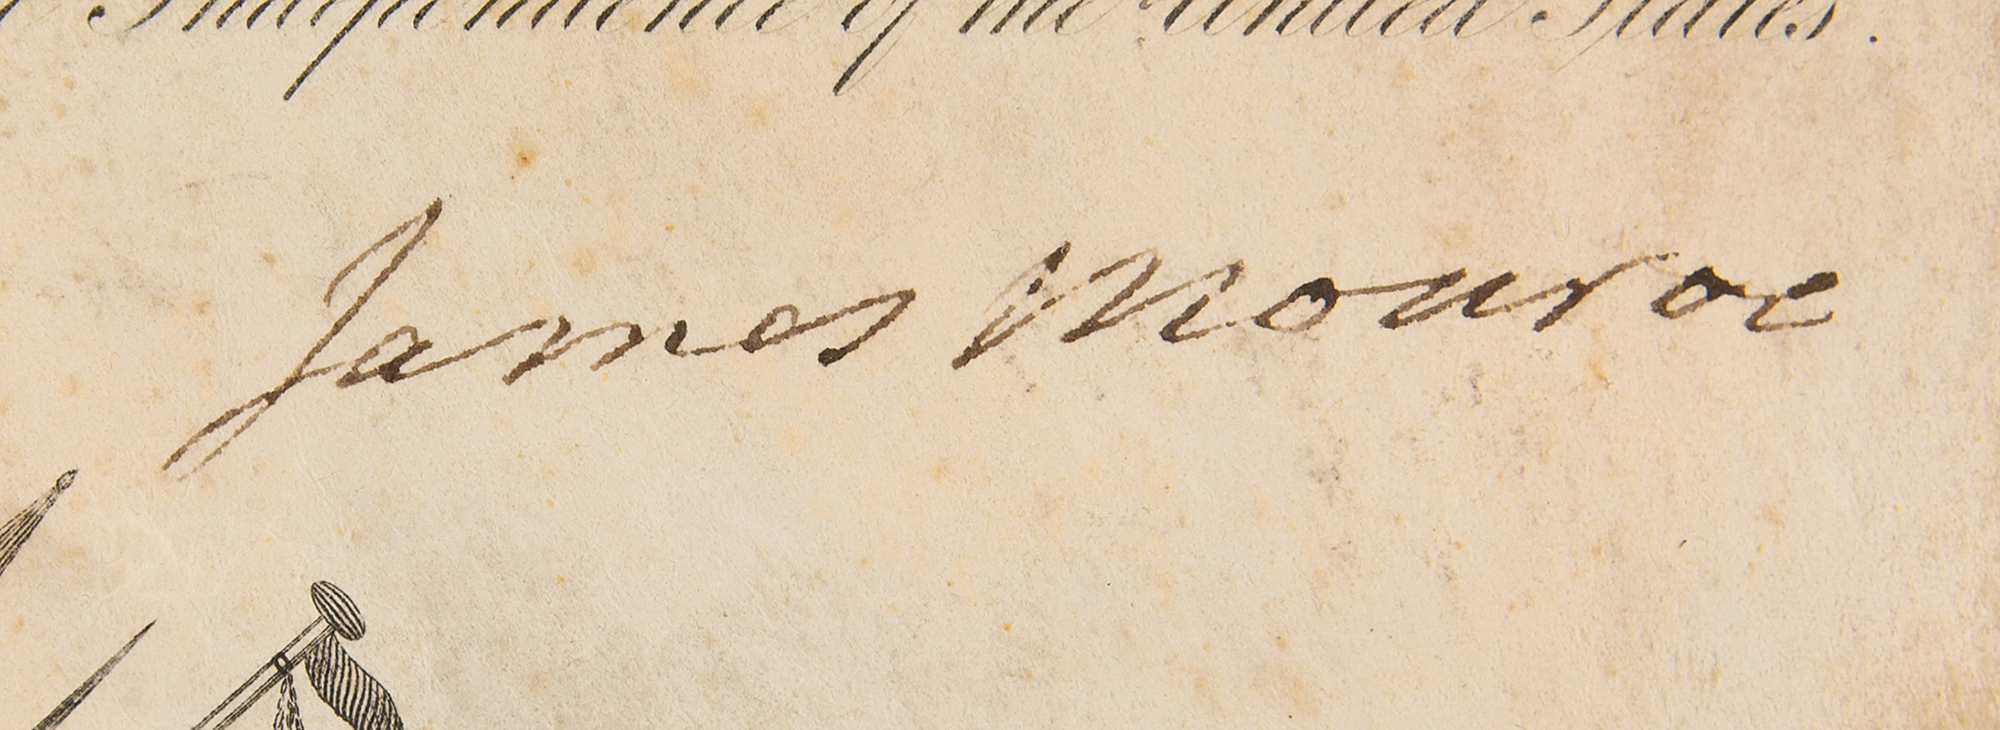 Independence of the United States.
James Monroe